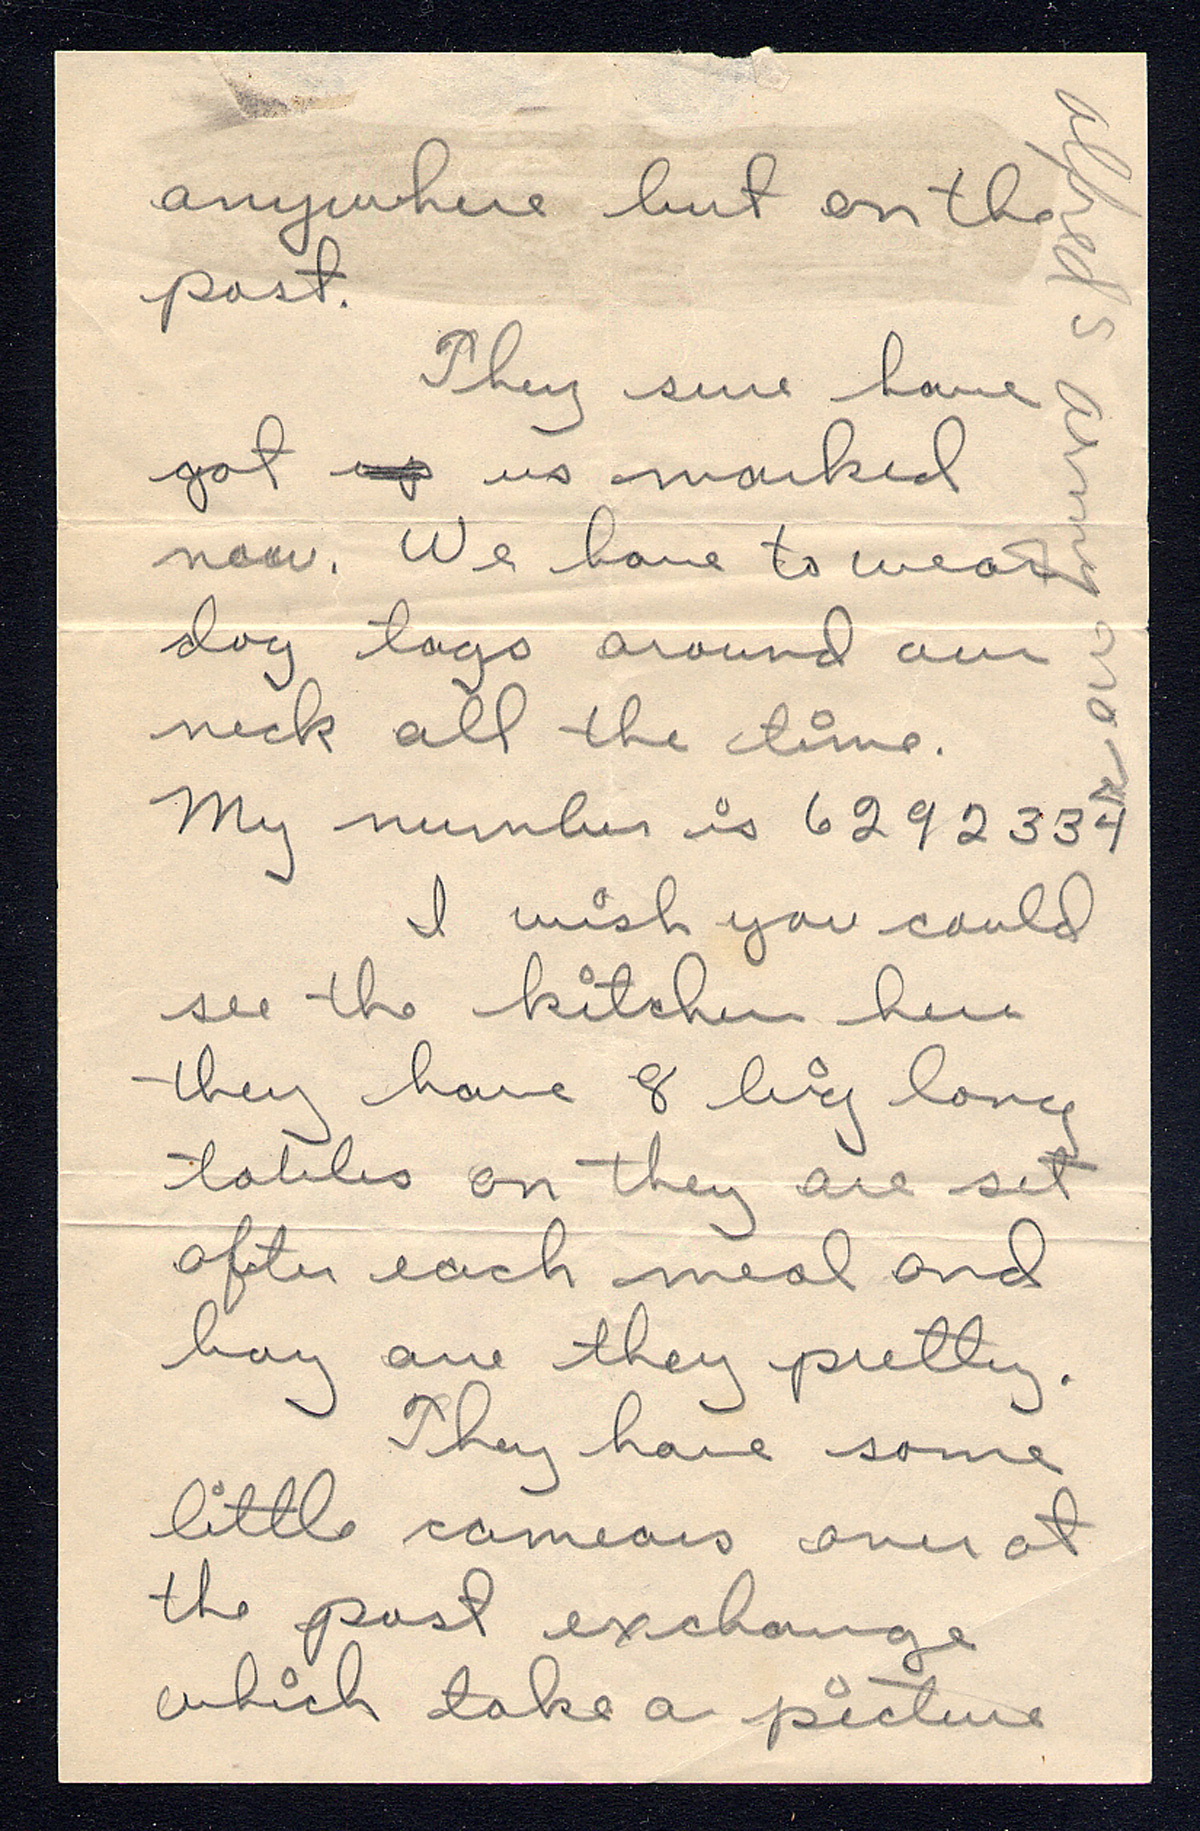 anywhere but on the
post.
They sure have
got up us marked
now. We have to wear
dog tags around our
neck all the time.
My number is 6292334
I wish you could
see the kitchen here
they have 8 big long
tables on they are set
after each meal and
boy are they pretty.
They have some
little camears over at
the post exchange
which take a picture
alfred s army no